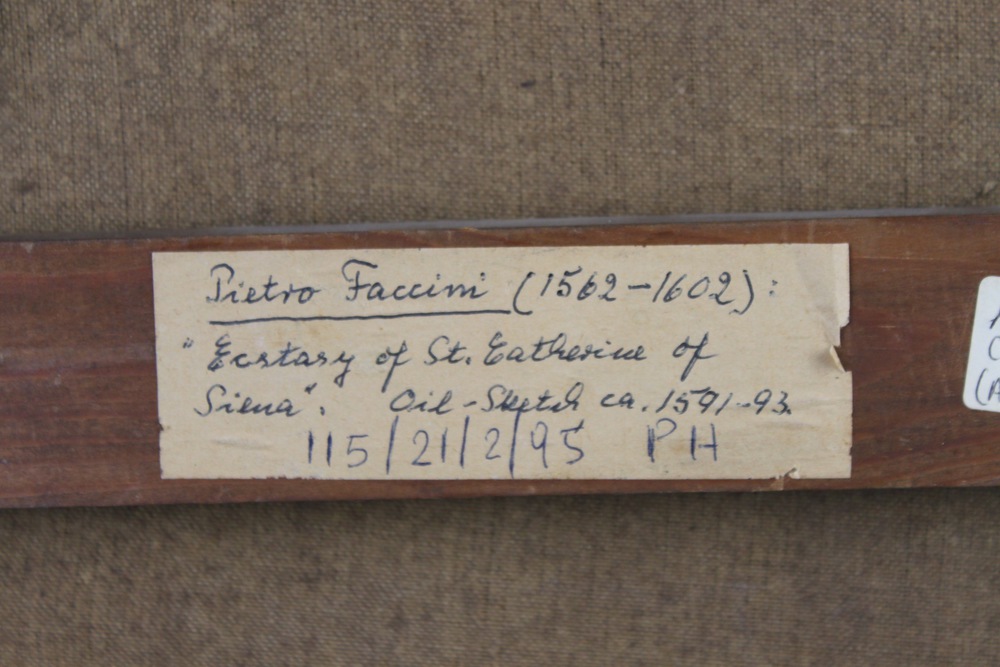 Pietro Faccini (1562-1602):
"Ecstasy of St. Catherine of
Siena". Oil-Sketch ca. 1591-93.
115/21/2/95 PH
(A